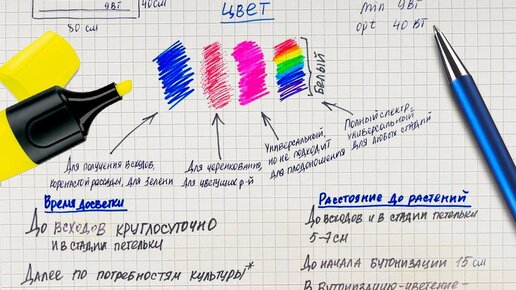 9ВТ
40см
80 см
ЦВЕТ
min 9ВТ
opt 40 ВТ
БЕЛЫЙ
Для получения всходов,
коренастой рассады, для зелени
Для черенкования,
для цветущих р-й
Универсальный,
но не подходит
для плодоношения
Полный спектр,
универсальный
для любых стадий
Время досветки
До всходов круглосуточно
и в стадии петельки
Далее по потребностям культуры*
Расстояние до растений
До всходов и в стадии петельки
5-7см
До начала бутонизации 15см
В бутонизацию-цветение-